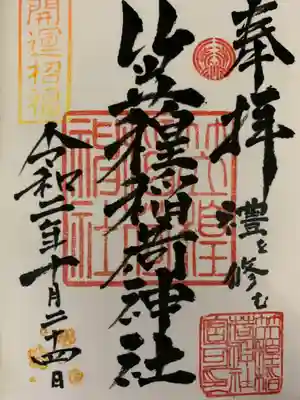 奉拝
禮を修む
笠䅣稲荷神社
令和二年十月二十四日
開運招福